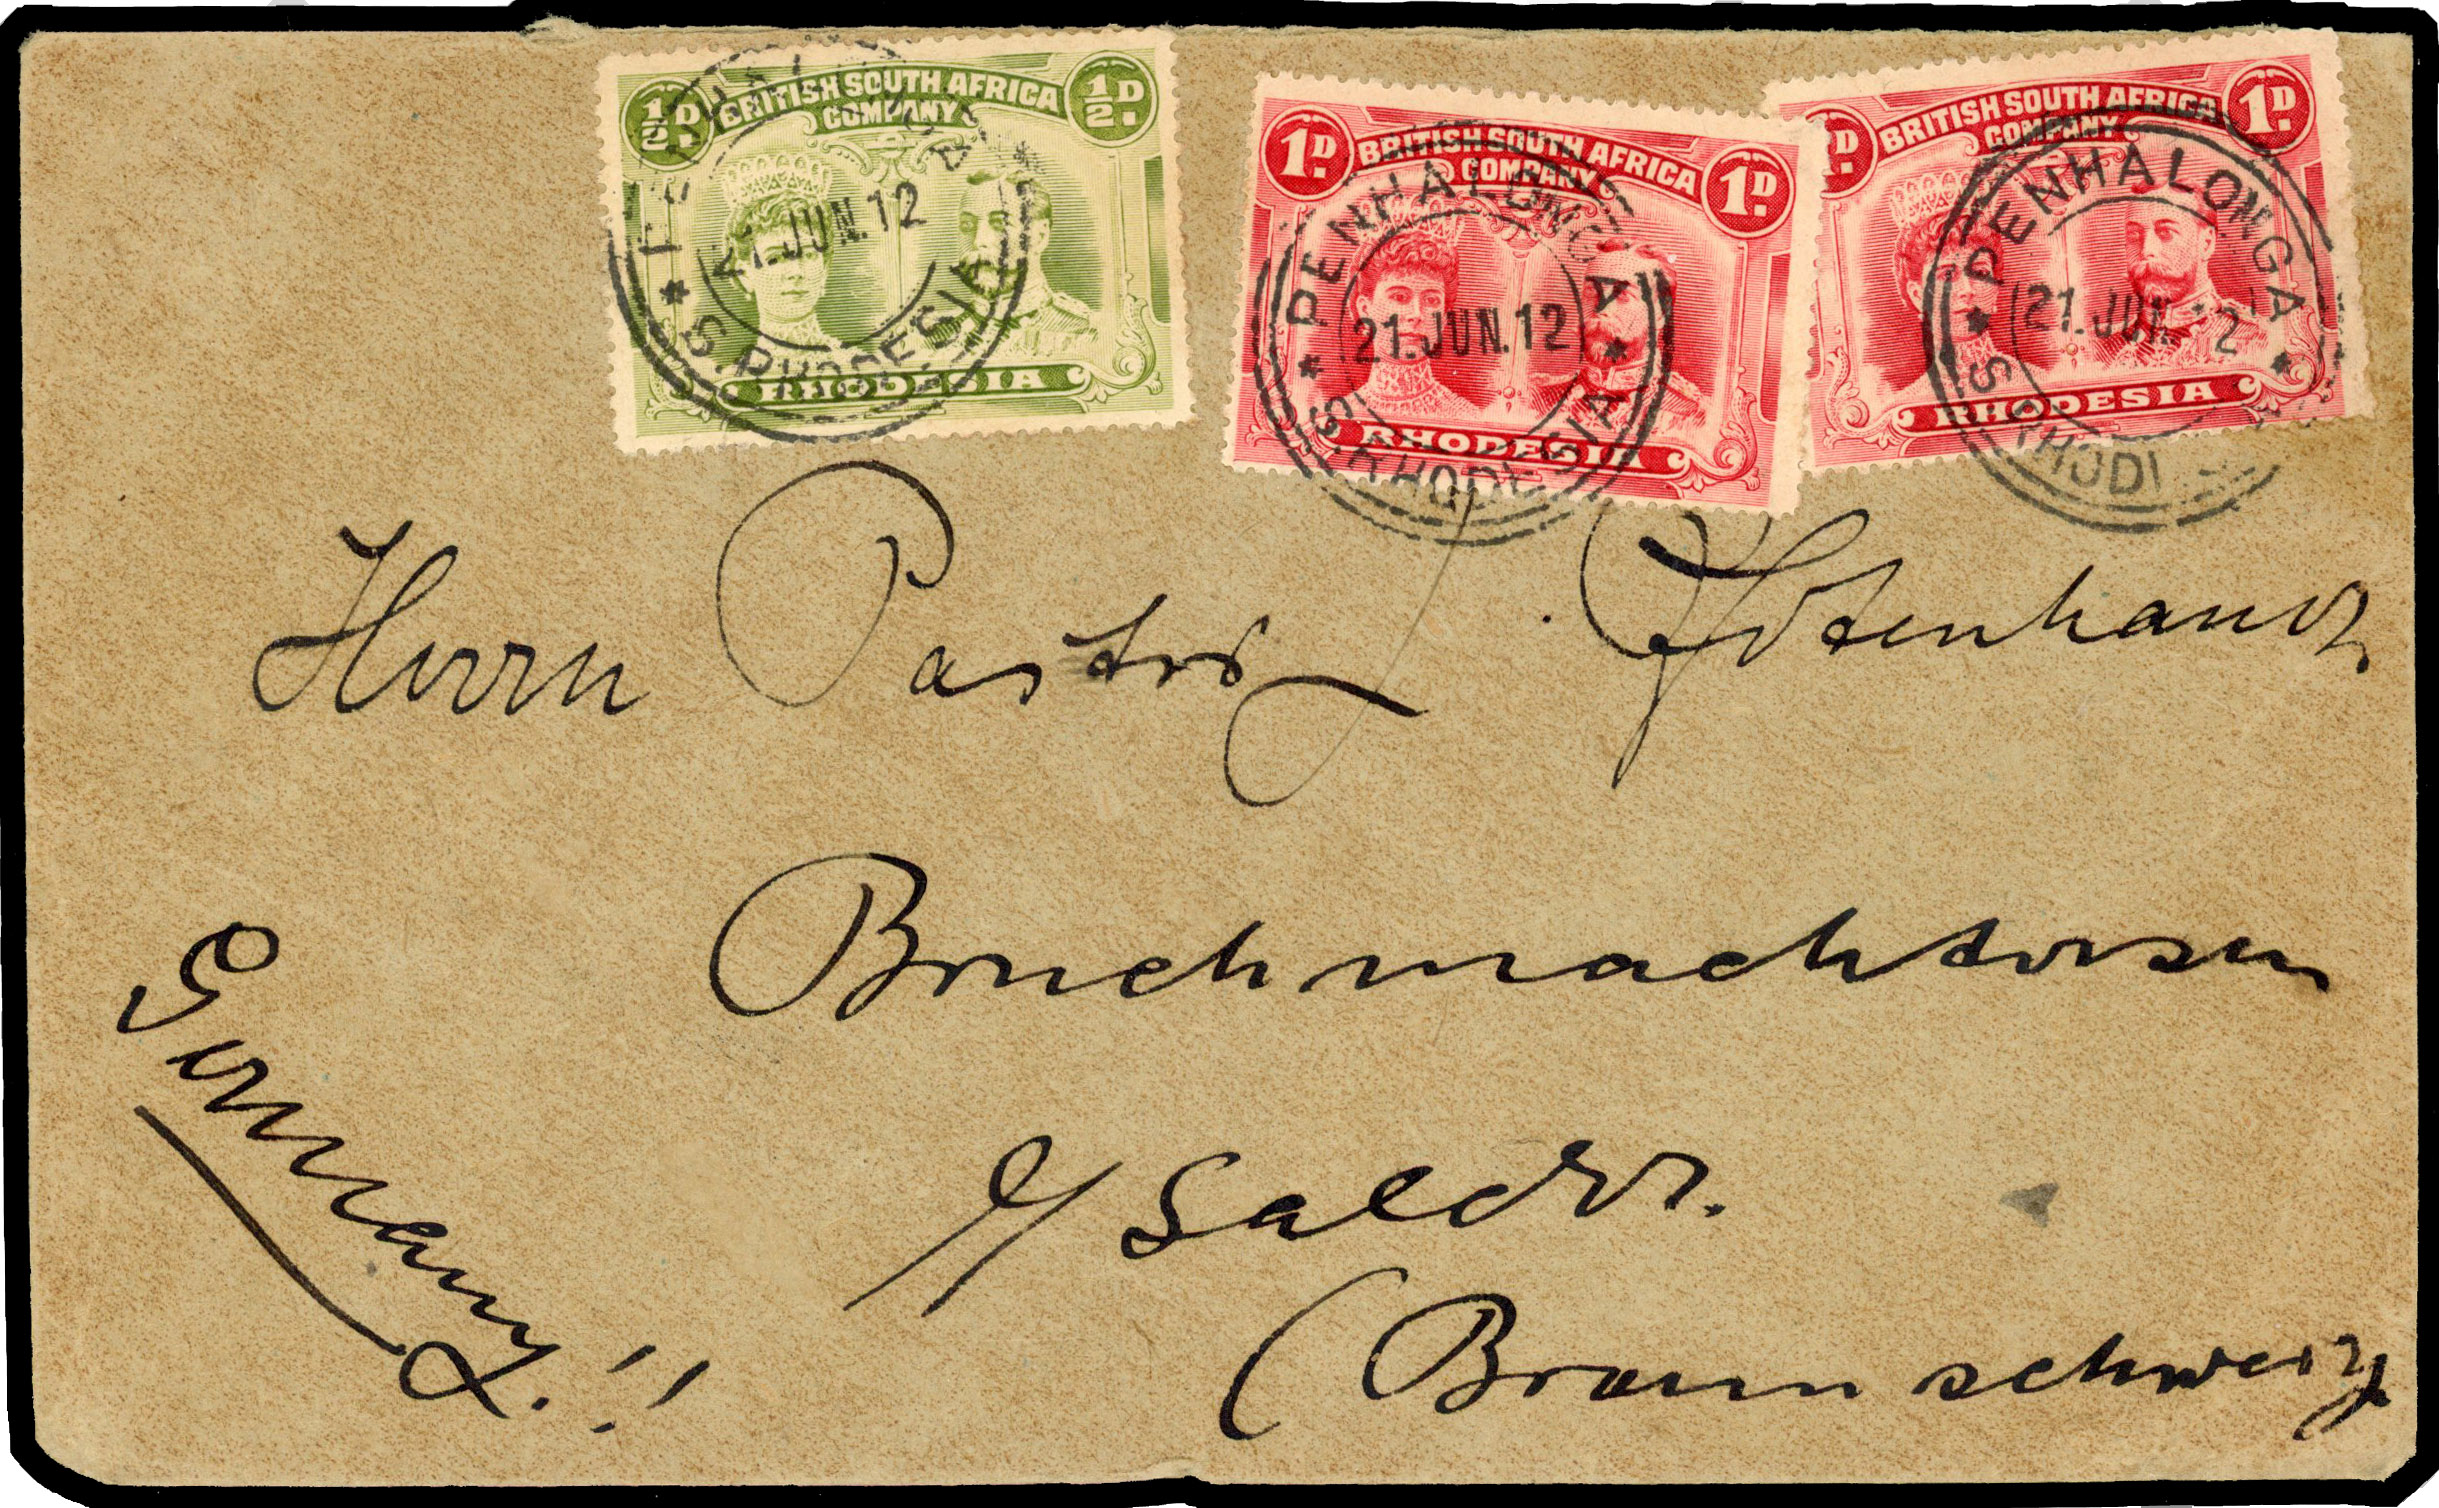 ½D BRITISH SOUTH AFRICA ½D
COMPANY
RHODESIA
21.JUN.12
S. RHODESIA
1D BRITISH SOUTH AFRICA 1D
COMPANY
RHODESIA
PENHALONGA
21.JUN.12
S. RHODESIA
1D BRITISH SOUTH AFRICA 1D
COMPANY
RHODESIA
PENHALONGA
21.JUN.12
S. RHODESIA
Herrn Pastor
Bruchmachtersen
b/ Salder.
(Braunschweig
Germany.!!